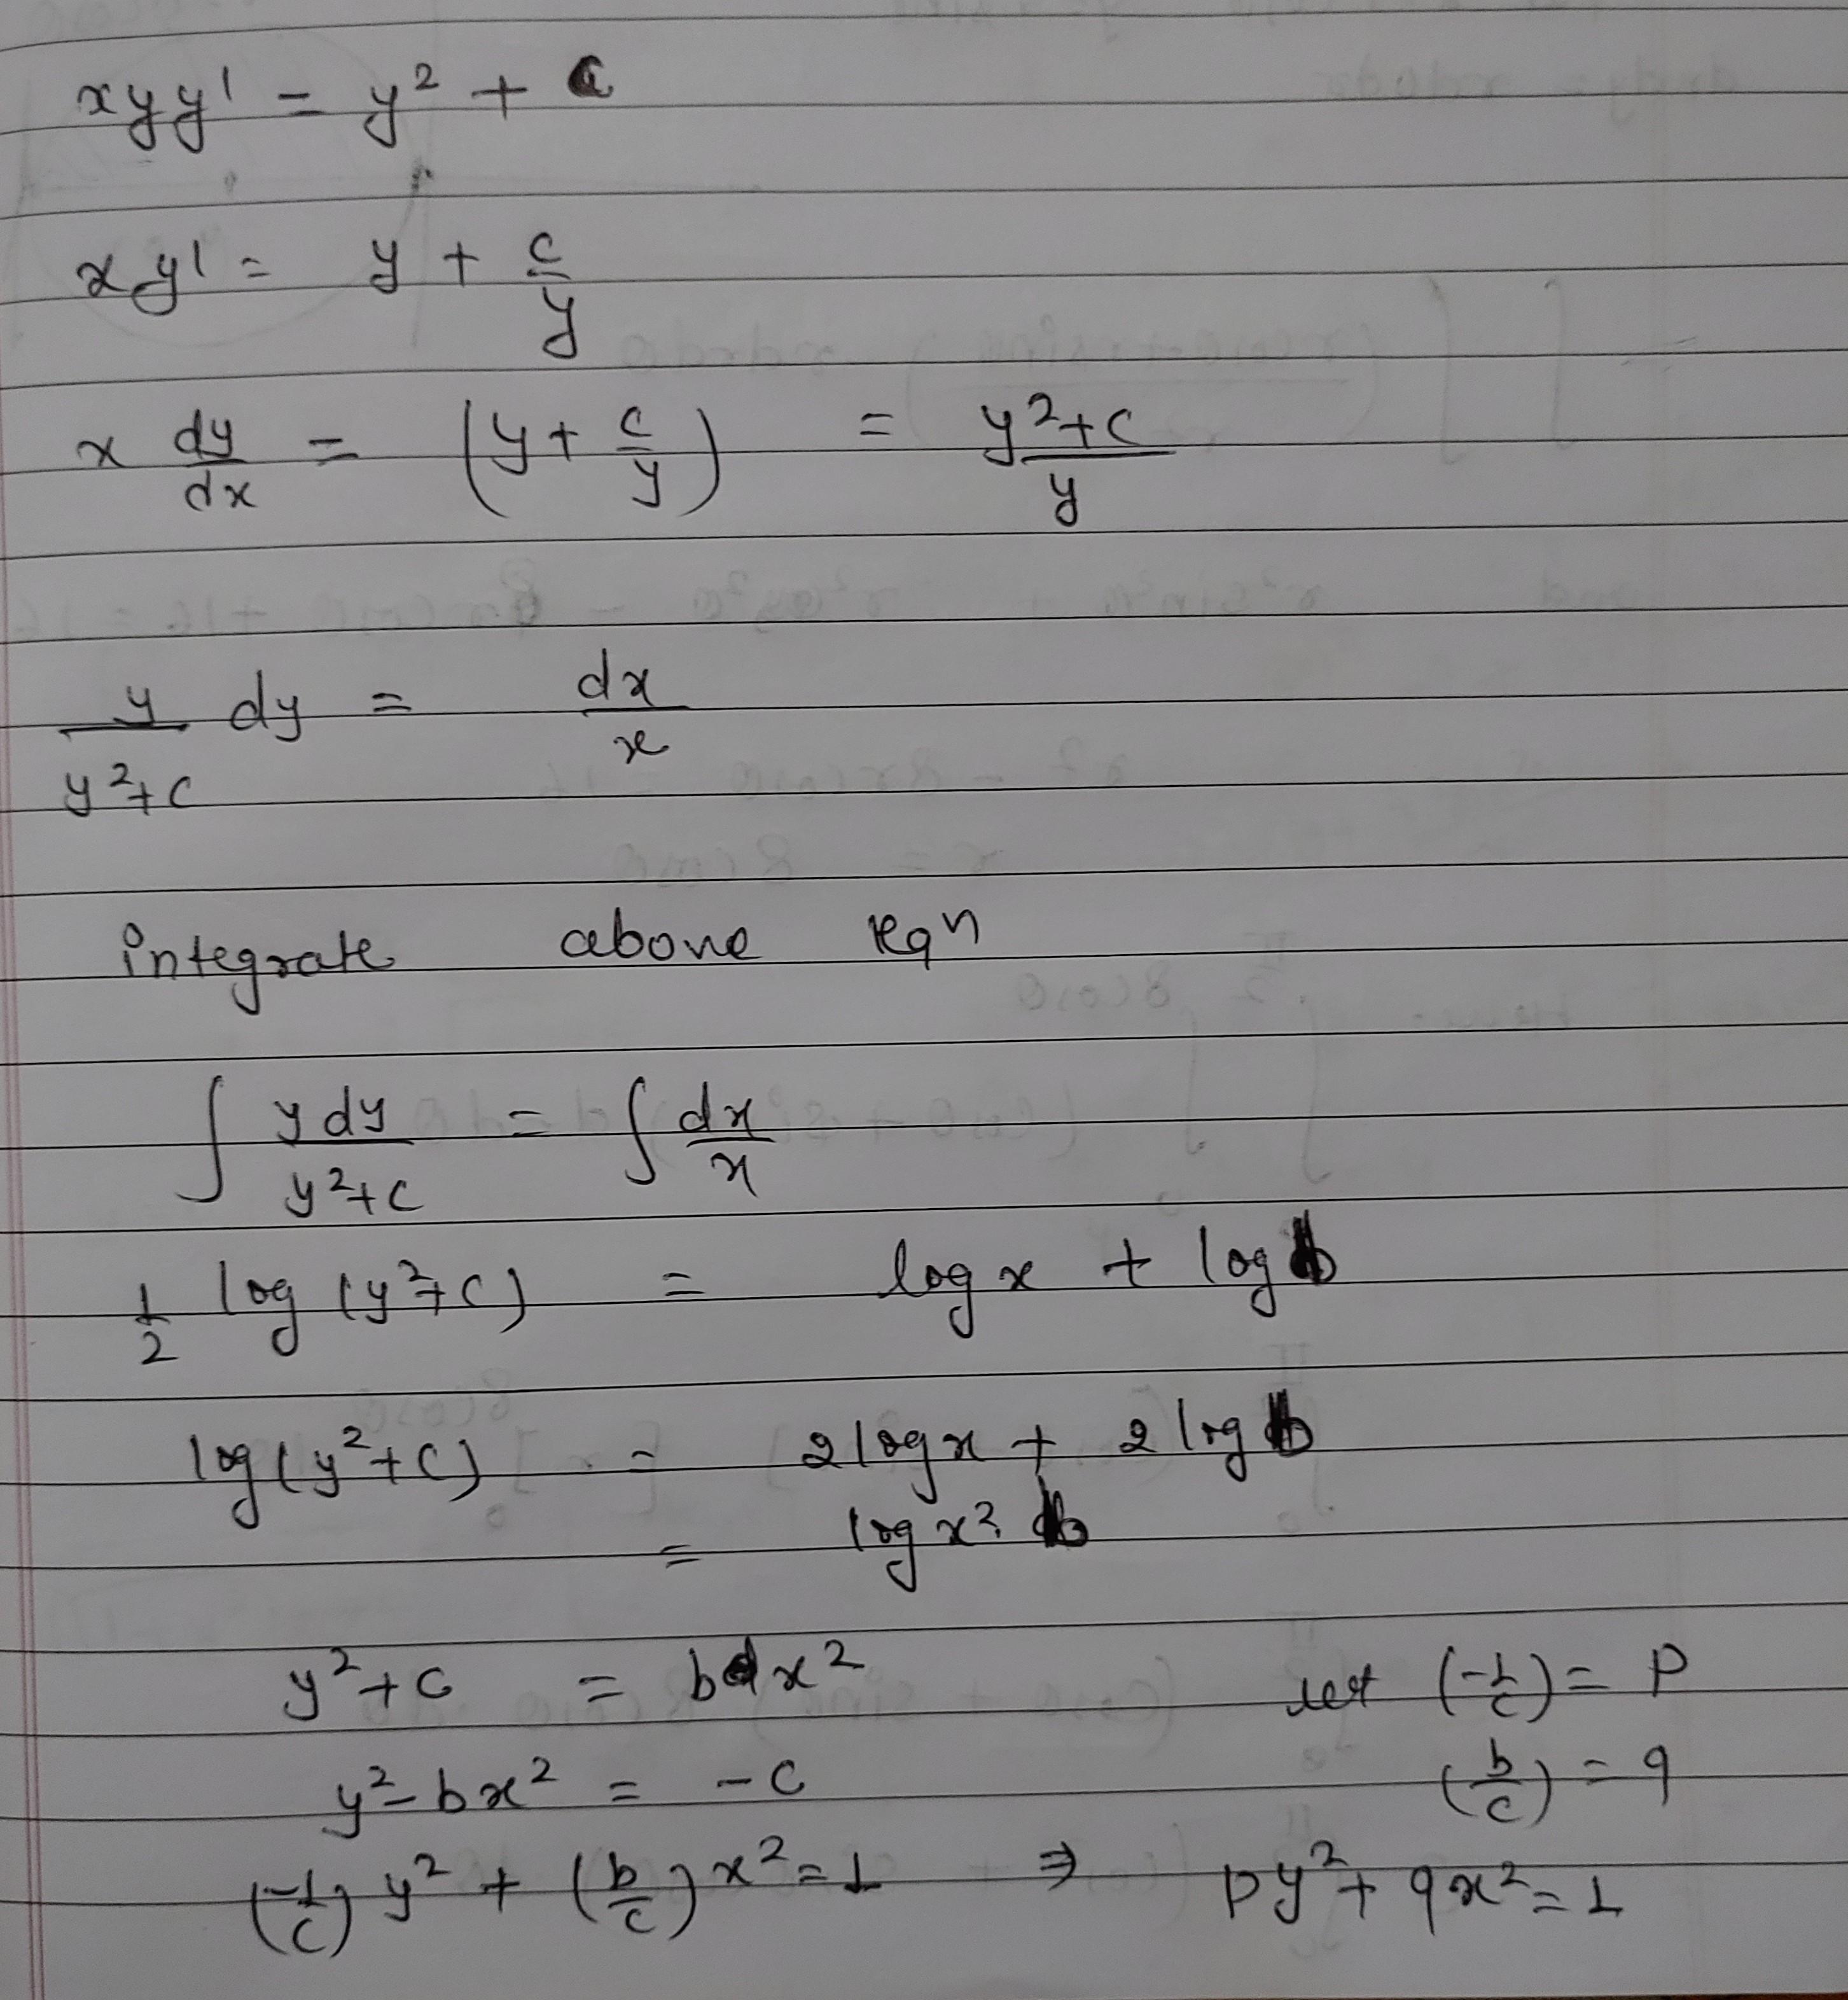 xyy' = y² + c
xy' = y + c/y
x dy/dx = (y + c/y) = (y²+c)/y
y/(y²+c) dy = dx/x
integrate above eqn
∫ y dy/(y²+c) = ∫ dx/x
1/2 log (y²+c) = log x + log b
log (y²+c) = 2 log x + 2 log b
= log x² b
y²+c = b x²
let (-1/c) = p
y² - bx² = -c
(b/c) = q
(-1/c) y² + (b/c) x² = 1 ⇒ py² + qx² = 1